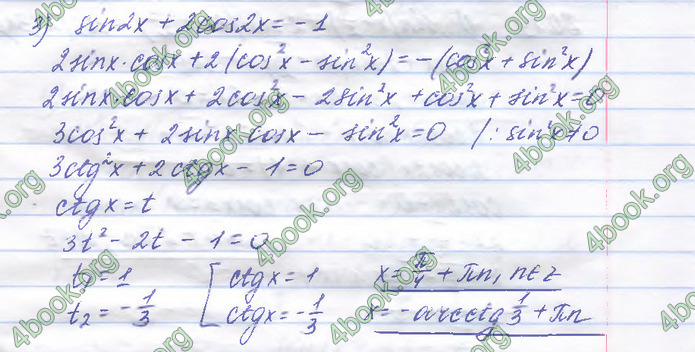 3) sin2x + 2cos2x = -1
2sinx·cosx + 2(cos²x - sin²x) = -(cos²x + sin²x)
2sinx·cosx + 2cos²x - 2sin²x + cos²x + sin²x = 0
3cos²x + 2sinx·cosx - sin²x = 0 /: sin²x ≠ 0
3ctg²x + 2ctgx - 1 = 0
ctgx = t
3t² - 2t - 1 = 0
t₁ = 1 [ctgx = 1 x = π/4 + πn, n∈Z
t₂ = -1/3 ctgx = -1/3 x = -arcctg 1/3 + πn
4book.org